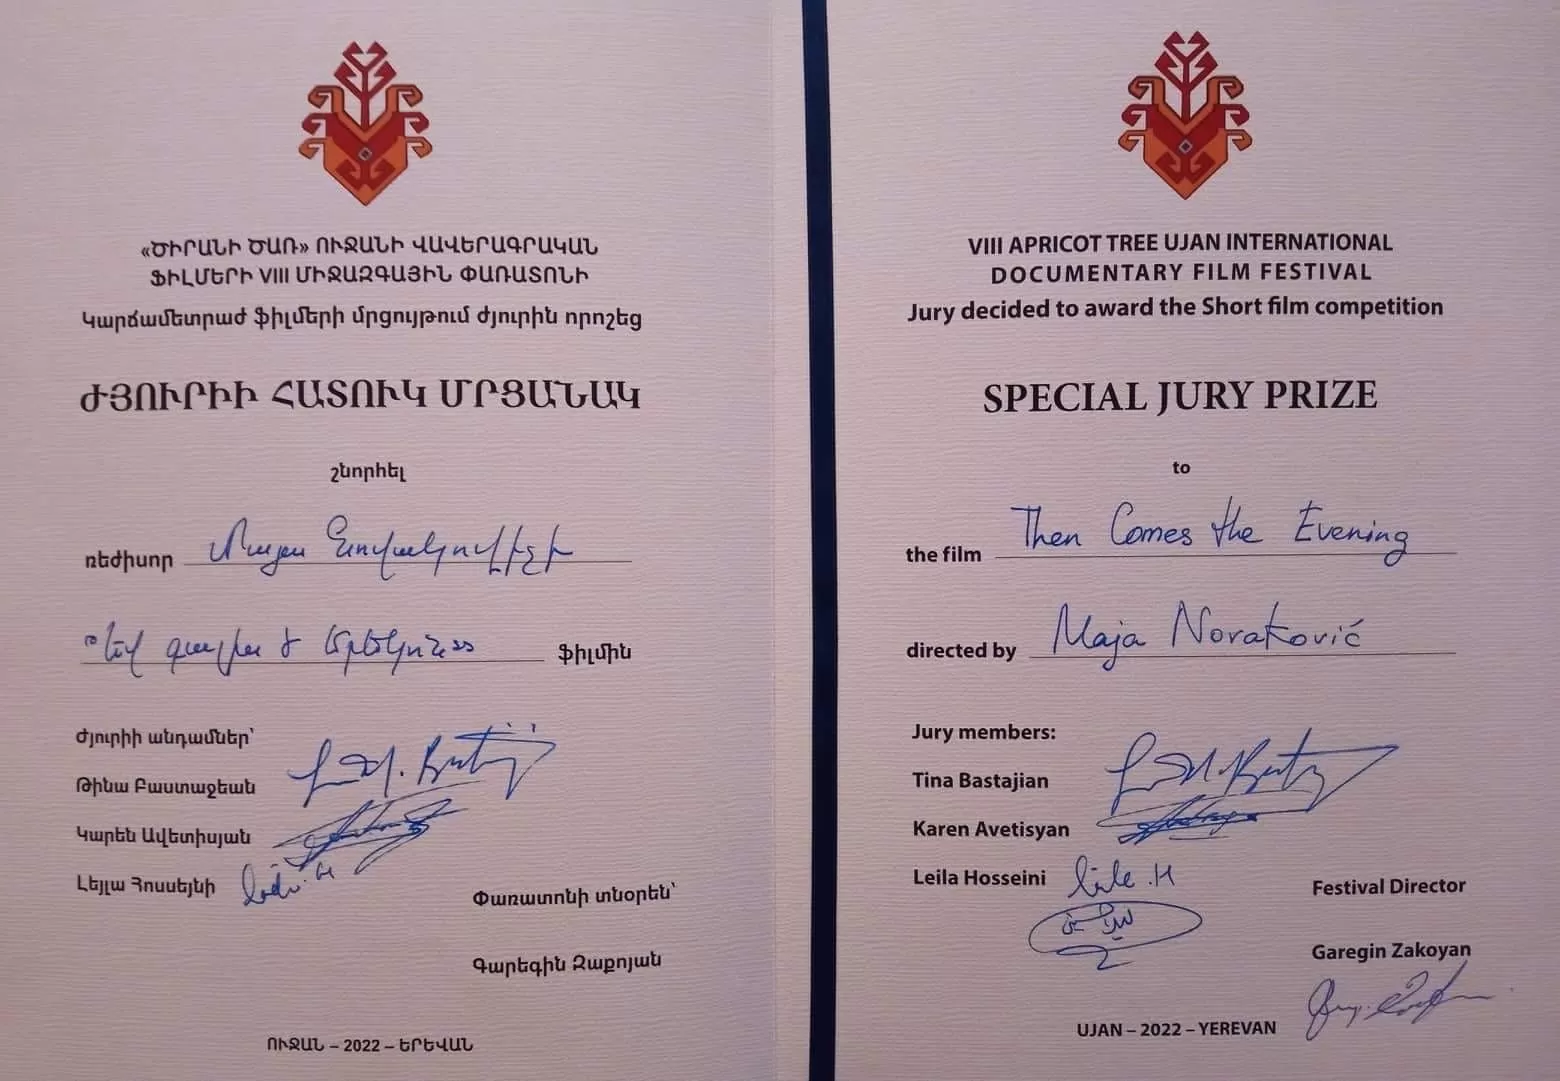 «ԾԻՐԱՆԻ ԾԱՌ» ՈՒՋԱՆԻ ՎԱՎԵՐԱԳՐԱԿԱՆ
ՖԻԼՄԵՐԻ VIII ՄԻՋԱԶԳԱՅԻՆ ՓԱՌԱՏՈՆԻ
Կարճամետրաժ ֆիլմերի մրցույթում ժյուրին որոշեց
ԺՅՈՒՐԻԻ ՀԱՏՈՒԿ ՄՐՑԱՆԱԿ
շնորհել
ռեժիսոր Մայա Նովակովիչի
ֆիլմին
Ժյուրիի անդամներ՝
Թինա Բաստաջեան
Կարեն Ավետիսյան
Լեյլա Հոսսեյնի
Փառատոնի տնօրեն՝
Գարեգին Զաքոյան
ՈՒՋԱՆ – 2022 – ԵՐԵՎԱՆ
VIII APRICOT TREE UJAN INTERNATIONAL
DOCUMENTARY FILM FESTIVAL
Jury decided to award the Short film competition
SPECIAL JURY PRIZE
to
the film Then Comes the Evening
directed by Maja Novaković
Jury members:
Tina Bastajian
Karen Avetisyan
Leila Hosseini
Festival Director
Garegin Zakoyan
UJAN – 2022 – YEREVAN